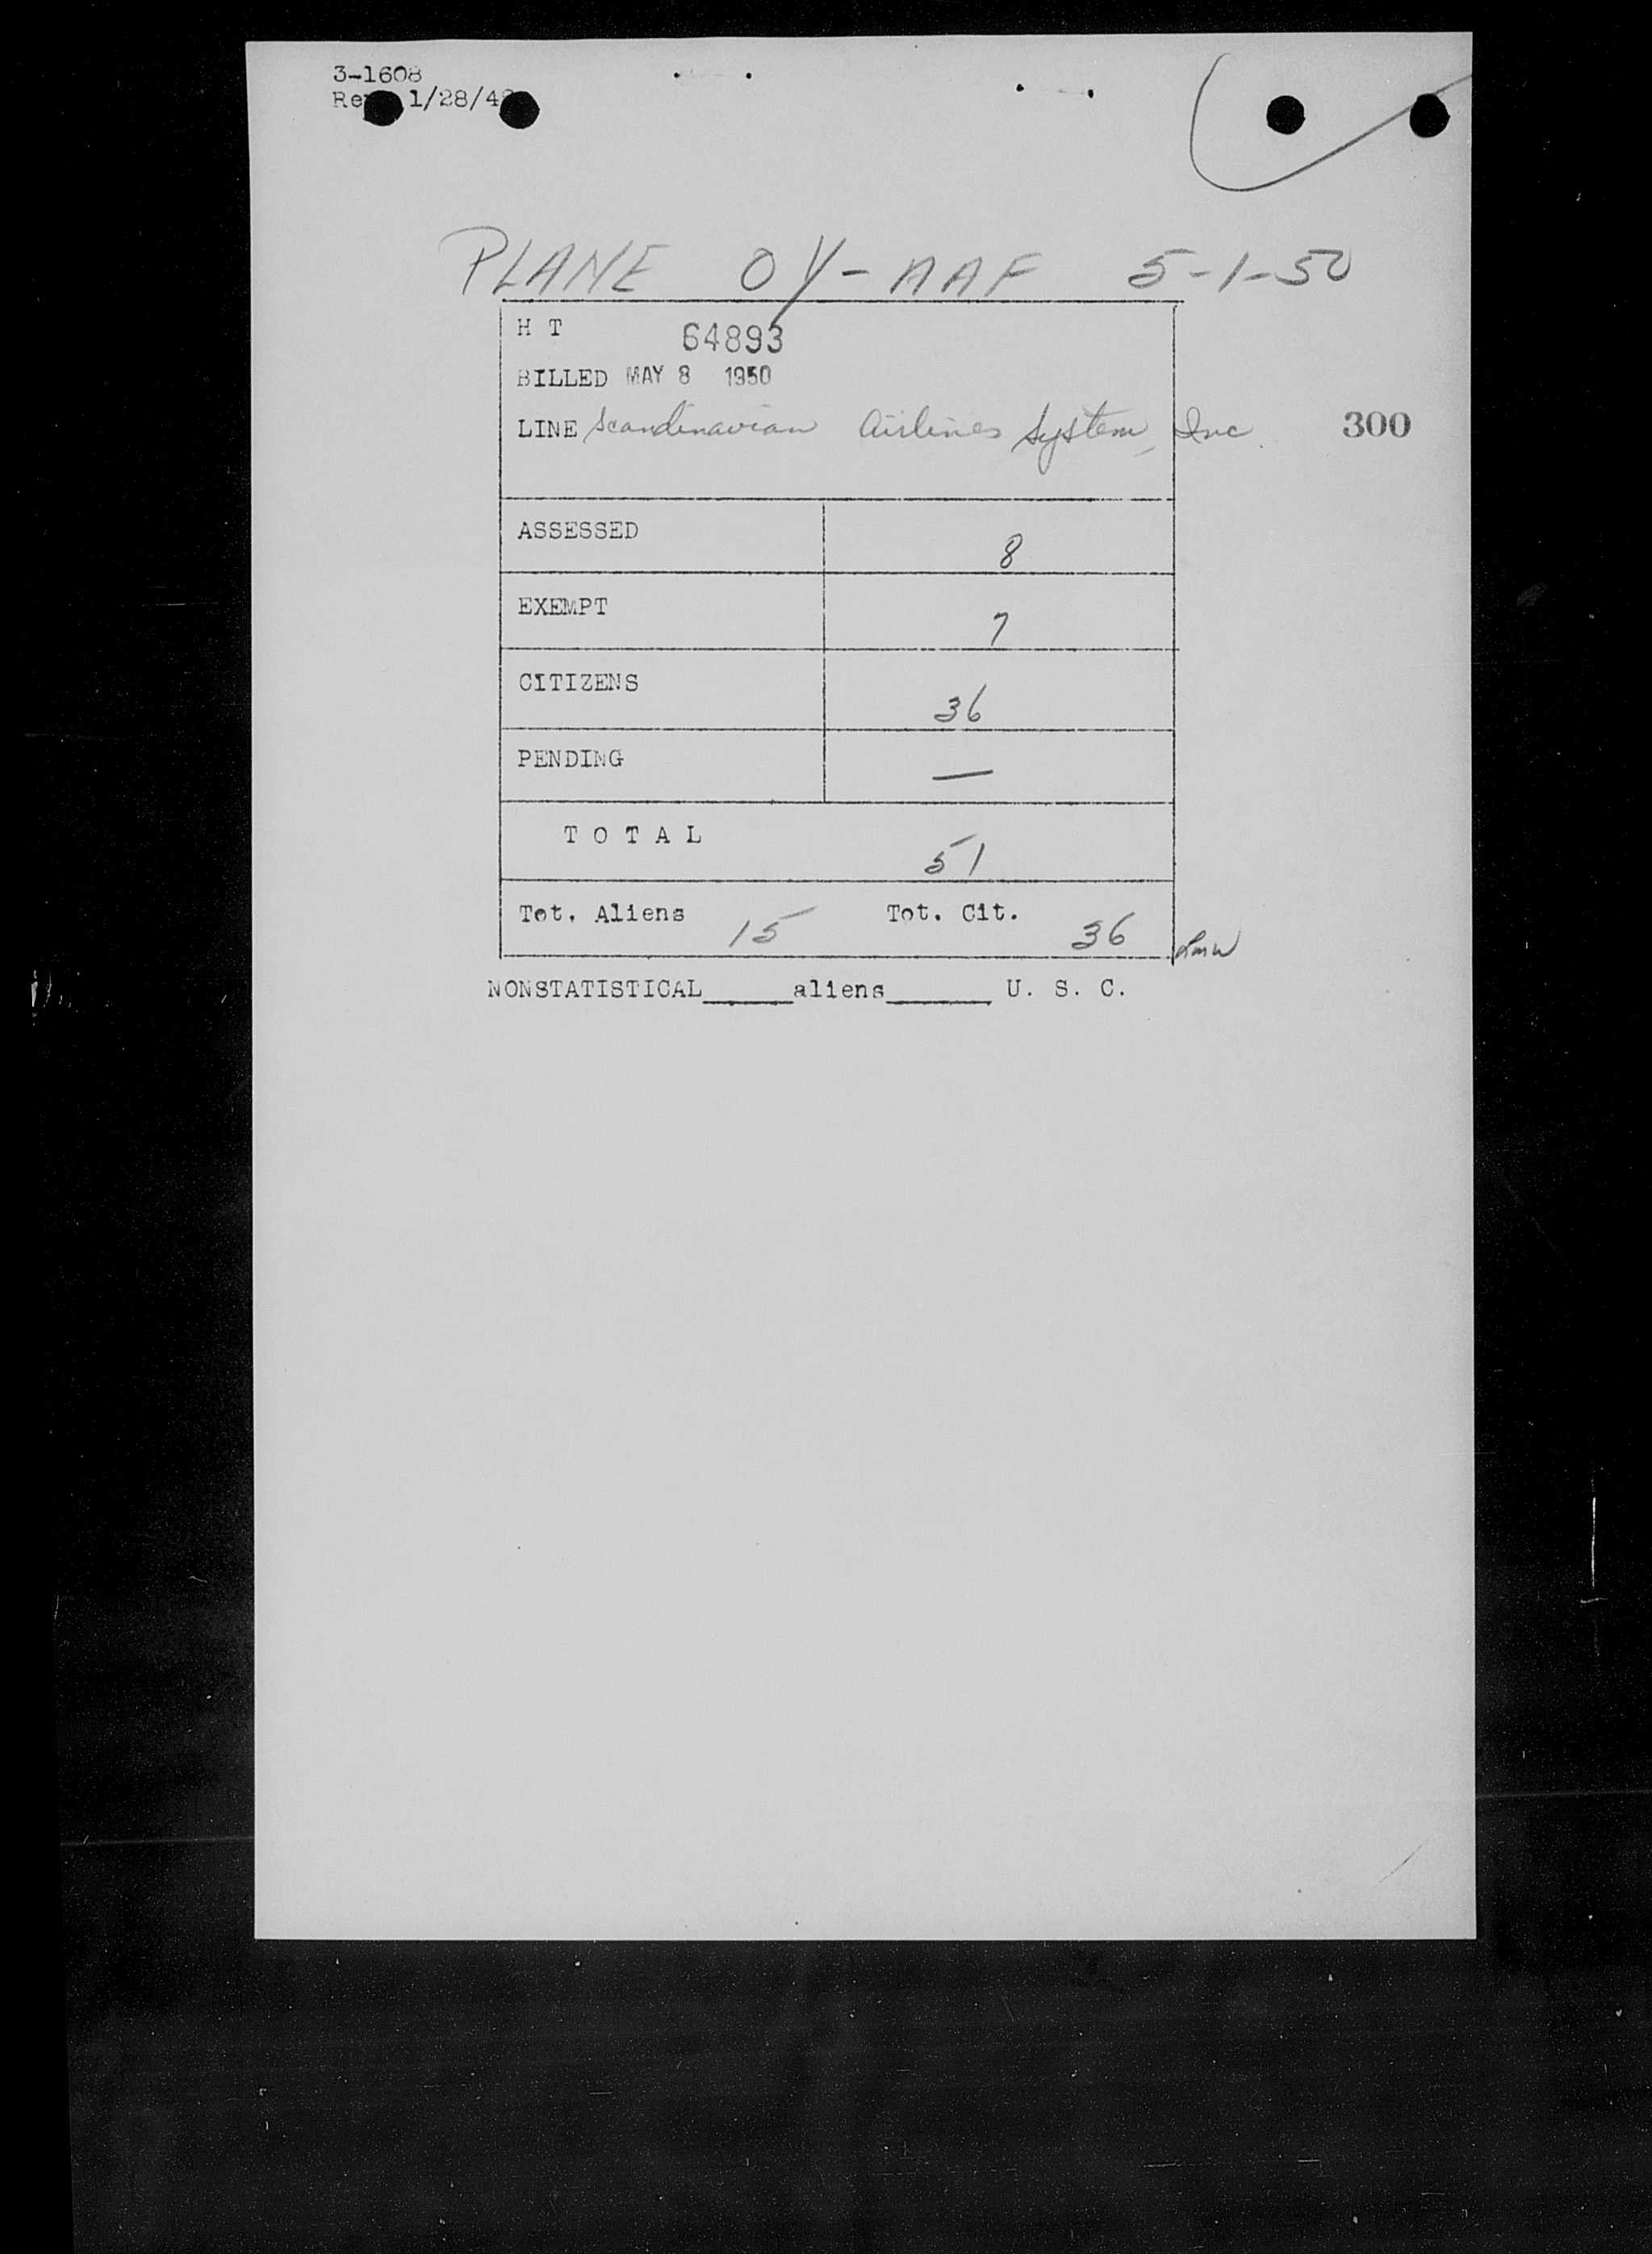 3-1608
1/28/4
PLANE OY-AAF 5-1-50
H T 64893
BILLED MAY 8 1950
LINE Scandinavian Airlines System, Inc.
300
ASSESSED 8
EXEMPT 7
CITIZENS 36
PENDING —
T O T A L 51
Tot. Aliens 15 Tot. Cit. 36
NONSTATISTICAL_____aliens______ U. S. C.